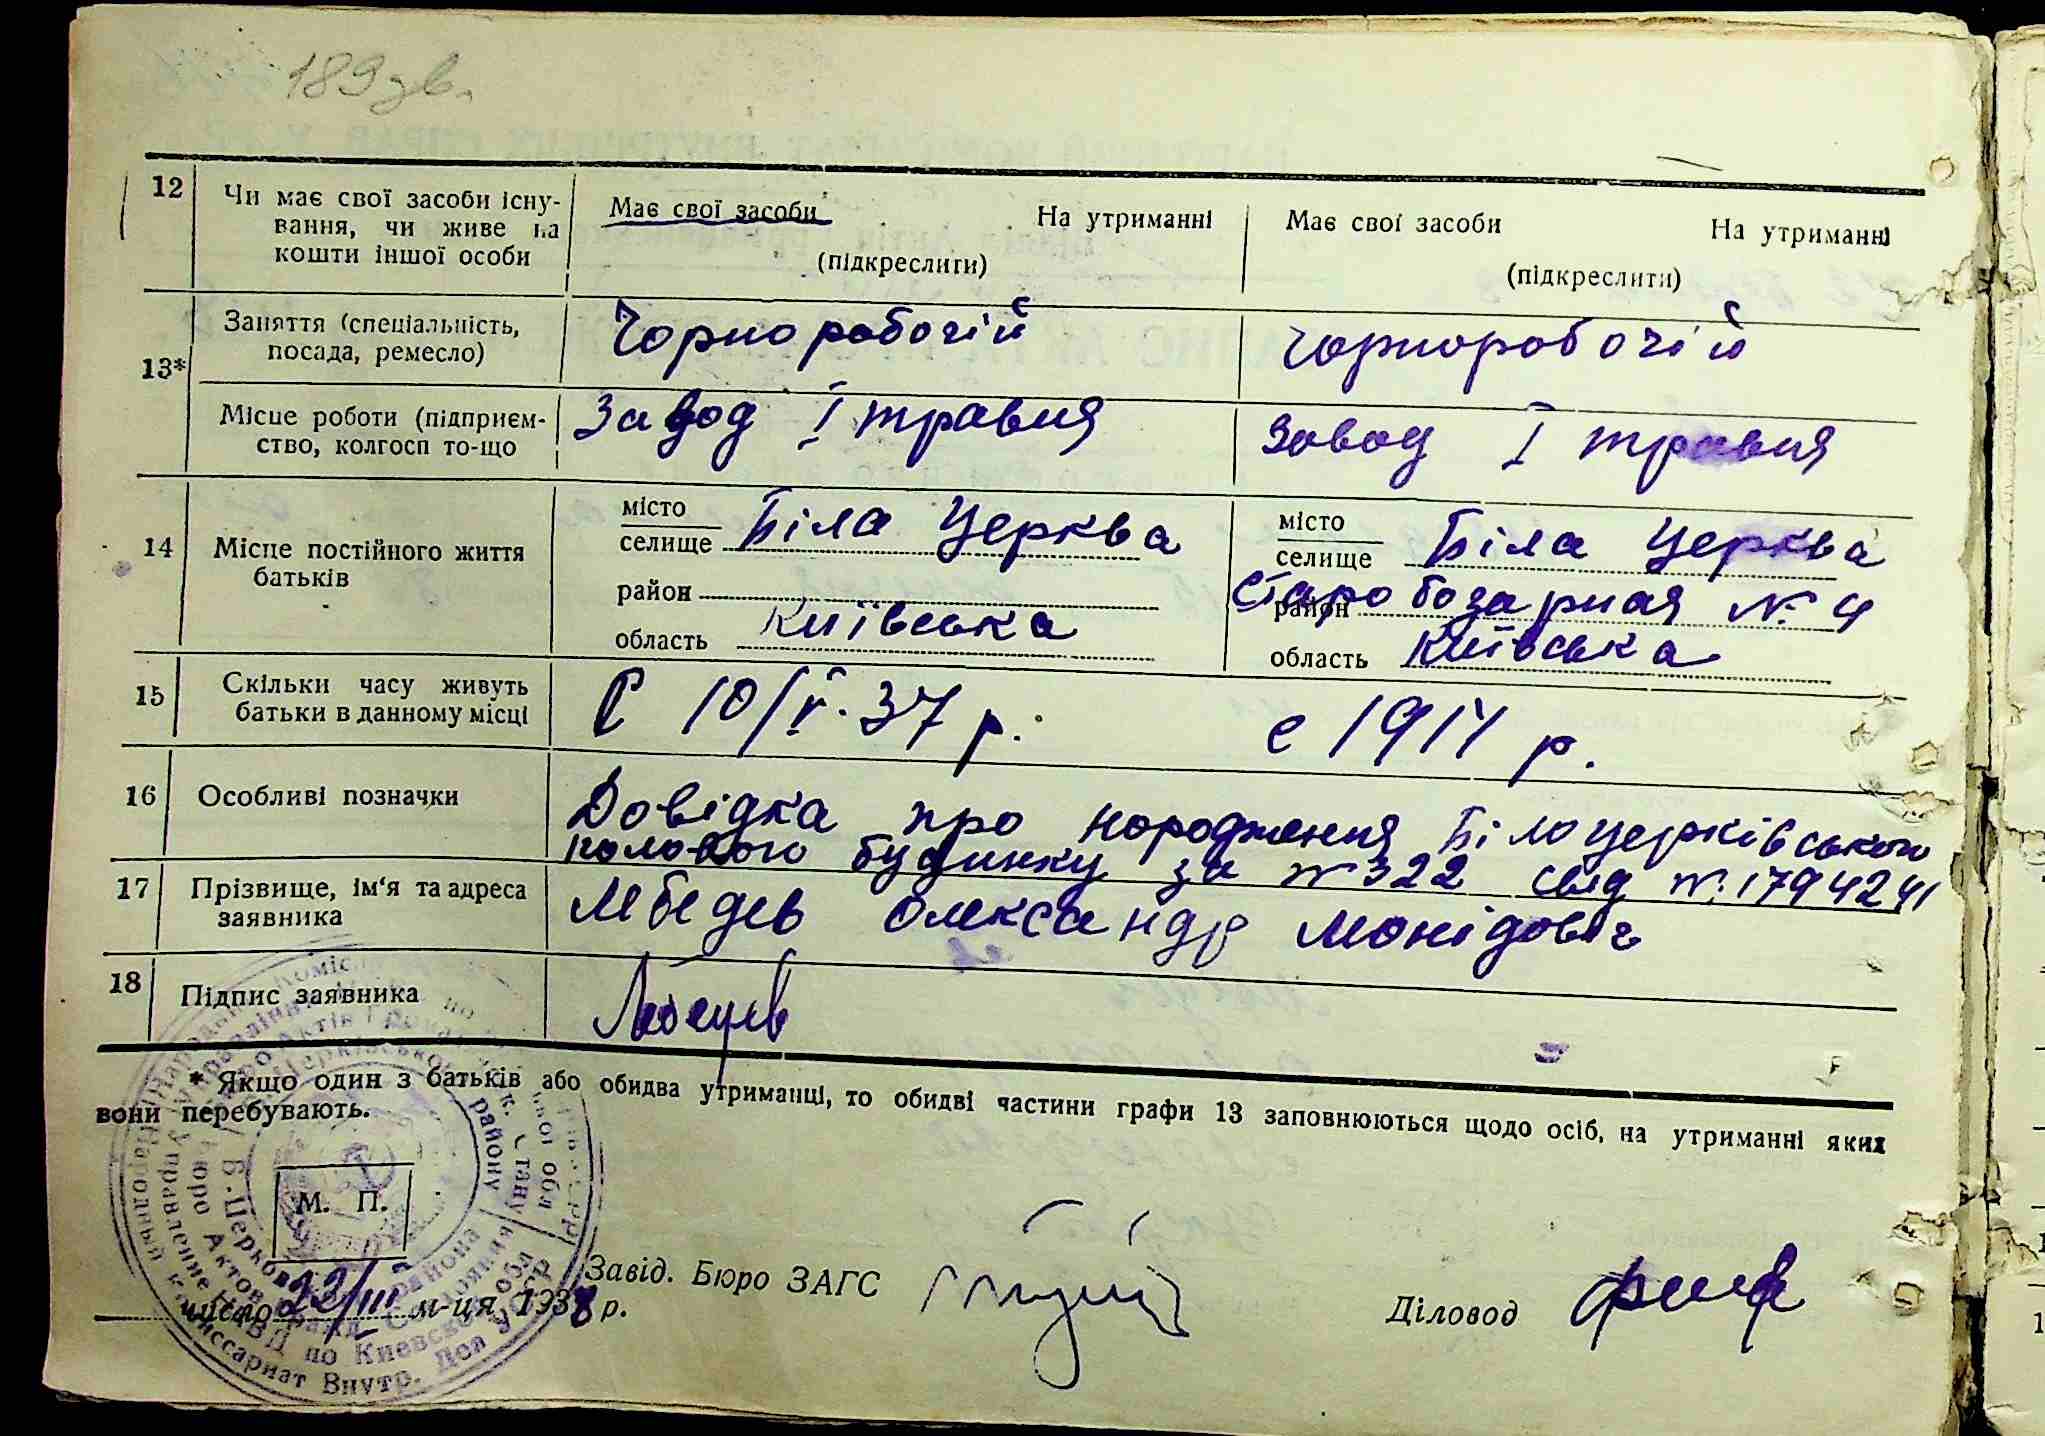 189 зв.
12 Чи має свої засоби існу- Має свої засоби На утриманні Має свої засоби На утриманні
вання, чи живе на (підкреслити) (підкреслити)
кошти іншої особи
13* Заняття (спеціальність, Чорноробочій Чорноробочій
посада, ремесло)
Місце роботи (підприєм- Завод I травня Завод I травня
ство, колгосп то-що
14 Місце постійного життя місто Біла Церква місто Біла Церква
батьків селище селище
район Старобазарная №. 4 район
область Київська область Київська
15 Скільки часу живуть С 10/V. 37 р. с 1914 р.
батьки в данному місці
16 Особливі позначки Довідка про народження Білоцерківського
полового будинку за № 322 №. 1794241
17 Прізвище, ім'я та адреса Лебедев Олександр
заявника
18 Підпис заявника Лебедев
* Якщо один з батьків або обидва утриманці, то обидві частини графи 13 заповнюються щодо осіб, на утриманні яких
вони перебувають.
М. П.
число 22/III м-ця 1938 р.
Завід. Бюро ЗАГС
Діловод